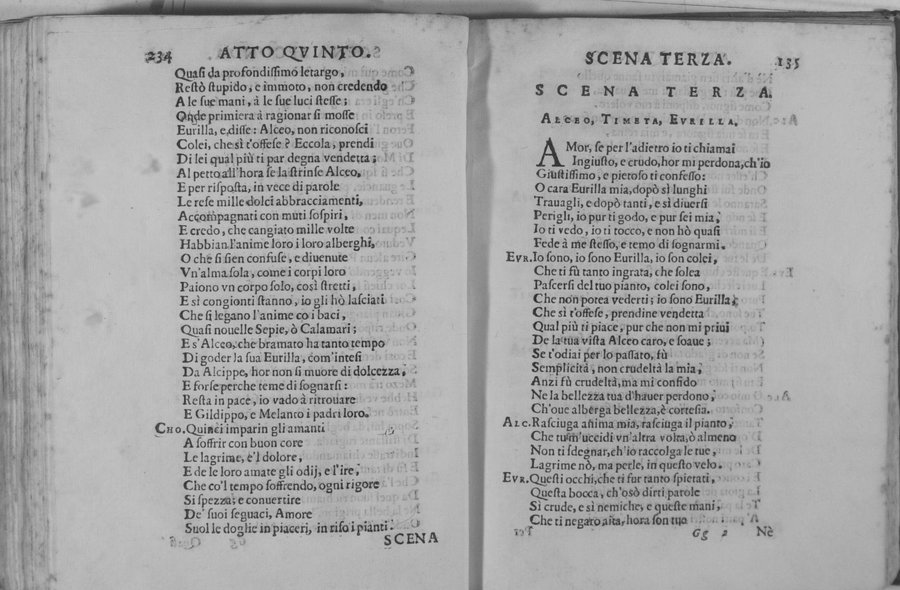 234 ATTO QVINTO.
Quasi da profondissimo letargo,
Restò stupido, e immoto, non credendo
A le sue mani, à le sue luci stesse;
Onde primiera à ragionar si mosse
Eurilla, e disse: Alceo, non riconosci
Colei, che sì t'offese? Eccola, prendi
Di lei qual più ti par degna vendetta;
Al petto all'hora se la strinse Alceo,
E per risposta, in vece di parole
Le rese mille dolci abbracciamenti,
Accompagnati con muti sospiri,
E credo, che cangiato mille volte
Habbian l'anime loro i loro alberghi,
O che si sien confuse, e diuenute
Vn'alma sola, come i corpi loro
Paiono vn corpo solo, così stretti,
E sì congionti stanno, io gli hò lasciati
Che si legano l'anime co i baci,
Quasi nouelle Sepie, ò Calamari;
E s'Alceo, che bramato ha tanto tempo
Di goder la sua Eurilla, com'intesi
Da Alcippe, hor non si muore di dolcezza,
E forse perche teme di sognarsi:
Resta in pace, io vado à ritrouare
E Gildippo, e Melanto i padri loro.
CHO. Quinci imparin gli amanti
A soffrir con buon core
Le lagrime, e'l dolore,
E de le loro amate gli odij, e l'ire,
Che co'l tempo soffrendo, ogni rigore
Si spezza; e conuertire
De' suoi seguaci, Amore
Suol le doglie in piaceri, in riso i pianti.
SCENA
SCENA TERZA. 135
SCENA TERZA.
ALCEO, TIMETA, EVRILLA.
AMor, se per l'adietro io ti chiamai
Ingiusto, e crudo, hor mi perdona, ch'io
Giustissimo, e pietoso ti confesso:
O cara Eurilla mia, dopò sì lunghi
Trauagli, e dopò tanti, e sì diuersi
Perigli, io pur ti godo, e pur sei mia,
Io ti vedo, io ti tocco, e non hò quasi
Fede à me stesso, e temo di sognarmi.
EVR. Io sono, io sono Eurilla, io son colei,
Che ti fù tanto ingrata, che solea
Pascersi del tuo pianto, colei sono,
Che non potea vederti; io sono Eurilla,
Che sì t'offese, prendine vendetta
Qual più ti piace, pur che non mi priui
De la tua vista Alceo caro, e soaue;
Se t'odiai per lo passato, fù
Semplicità, non crudeltà la mia,
Anzi fù crudeltà, ma mi confido
Ne la bellezza tua d'hauer perdono,
Ch'oue alberga bellezza, è cortesia.
ALC. Rasciuga anima mia, rasciuga il pianto,
Che tu m'vccidi vn'altra volta, ò almeno
Non ti sdegnar, ch'io raccolga le tue,
Lagrime nò, ma perle, in questo velo.
EVR. Questi occhi, che ti fur tanto spietati,
Questa bocca, ch'osò dirti parole
Sì crude, e sì nemiche, e queste mani,
Che ti negaro aita, hora son tua
Gg 2 Nè